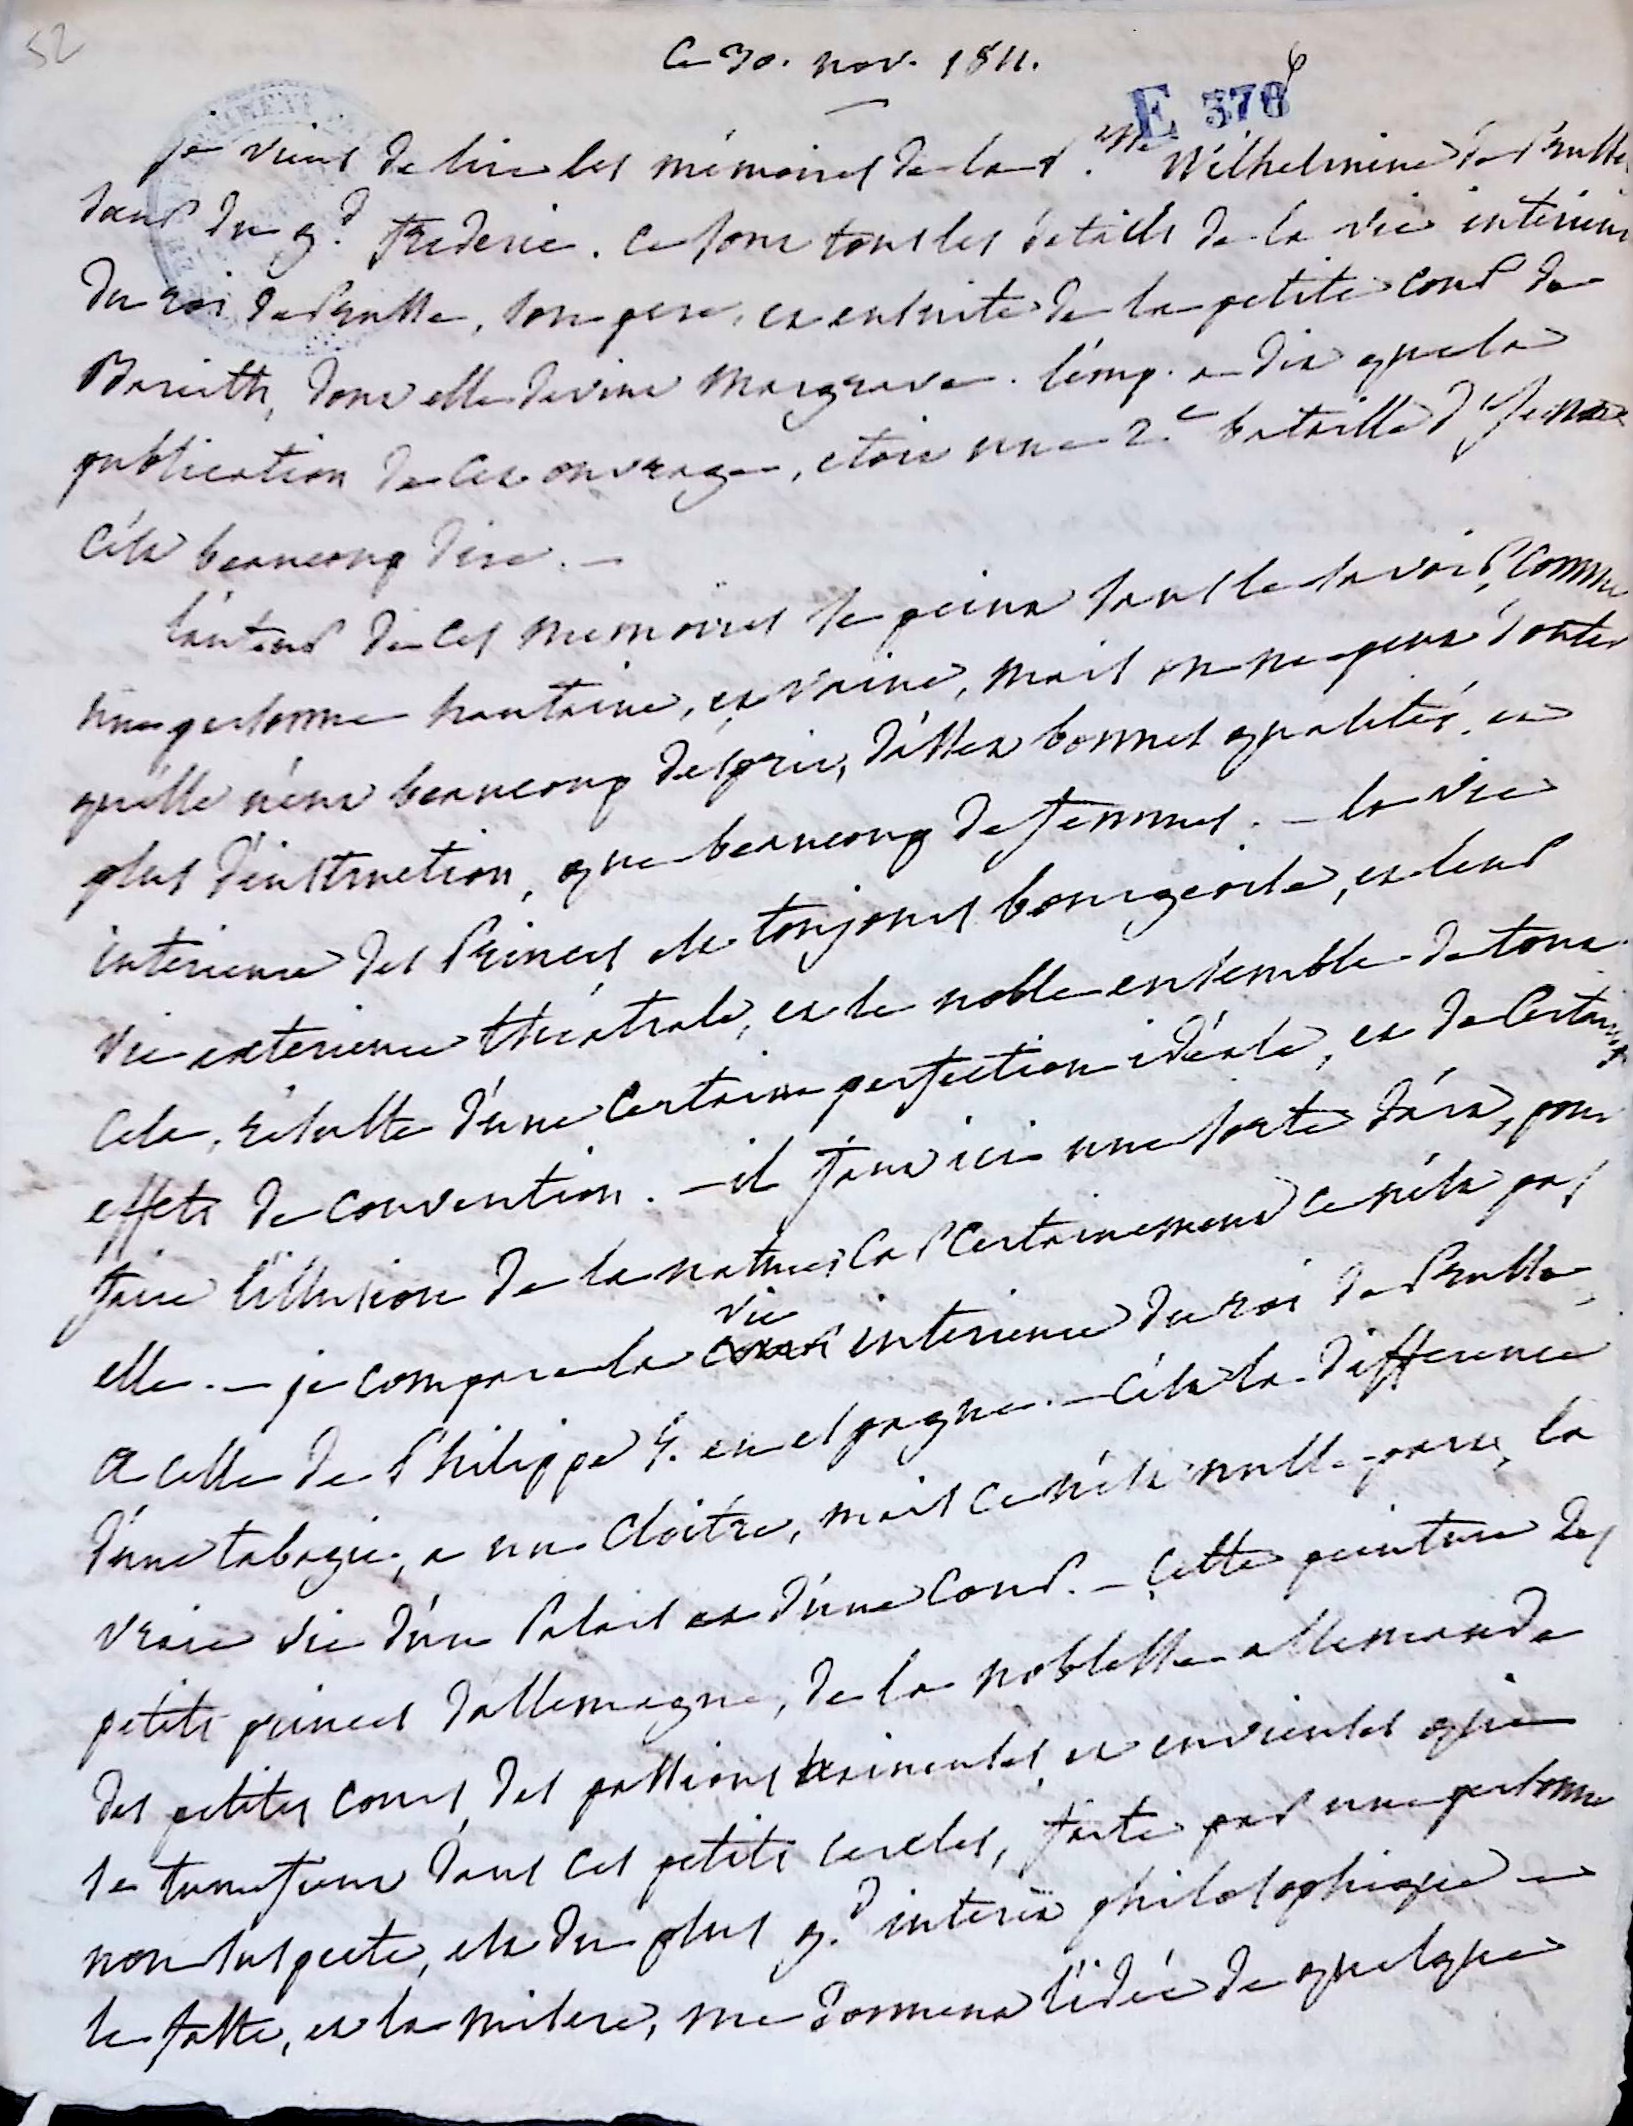 52
Ce 30. nov. 1811.
E 378 6
je viens de lire les mémoires de la P.sse Wilhelmine de Prusse
sœur du g.d Frederic. ce sont tous les détails de la vie interieure
du roi de Prusse, son pere, et ensuite de la petite cour de
Bareith, dont elle devint Margrave. l'emp. a dit que la
publication de cet ouvrage, etoit une 2.e bataille d'Jena
c'est beaucoup dire. —
l'auteur de ces memoires se peint sans le savoir, comme
une personne hautaine, et vaine, mais on ne peut douter
qu'elle n'eut beaucoup d'esprit, d'assez bonnes qualités, et
plus d'instruction, que beaucoup de femmes. — la vie
interieure des Princes, est toujours bourgeoise, et leur
vie exterieure théatrale, et le noble ensemble de tout
cela, résulte d'une certaine perfection idéale, et de certains
effets de convention. — il faut ici une sorte d'art, pour
faire l'illusion de la nature, car certainement ce n'est pas
elle. — je compare la cour vie interieure du roi de Prusse,
a celle de Philippe 5. en espagne. — c'est la difference
d'une tabagie, a un cloitre, mais ce n'est nulle part, la
vraie vie d'un Palais et d'une cour. — cette peinture des
petits princes d'allemagne, de la noblesse allemande
des petites cours, des passions haineuses, et envieuses qui
se tuméfient dans ces petits cercles, faite par une personne
non suspecte, est du plus g.d interêt philosophique —
le faste, et la misere, me donnent l'idée de quelque